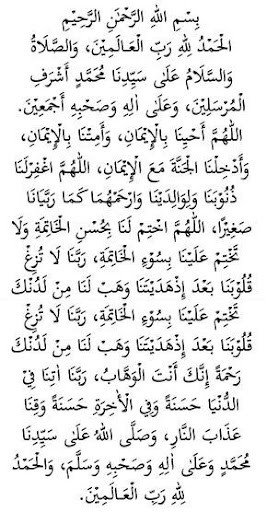 بِسْمِ اللهِ الرَّحْمٰنِ الرَّحِيْمِ
الْحَمْدُ لِلّٰهِ رَبِّ الْعَالَمِيْنَ، وَالصَّلَاةُ
وَالسَّلَامُ عَلَى سَيِّدِنَا مُحَمَّدٍ أَشْرَفِ
الْمُرْسَلِيْنَ، وَعَلَى اٰلِهِ وَصَحْبِهِ أَجْمَعِيْنَ.
اَللّٰهُمَّ أَحْيِنَا بِالْإِيْمَانِ، وَأَمِتْنَا بِالْإِيْمَانِ،
وَأَدْخِلْنَا الْجَنَّةَ مَعَ الْإِيْمَانِ، اَللّٰهُمَّ اغْفِرْلَنَا
ذُنُوْبَنَا وَلِوَالِدَيْنَا وَارْحَمْهُمَا كَمَا رَبَّيَانَا
صَغِيْرًا، اَللّٰهُمَّ اخْتِمْ لَنَا بِحُسْنِ الْخَاتِمَةِ وَلَا
تَخْتِمْ عَلَيْنَا بِسُوْءِ الْخَاتِمَةِ، رَبَّنَا لَا تُزِغْ
قُلُوْبَنَا بَعْدَ إِذْهَدَيْتَنَا وَهَبْ لَنَا مِنْ لَدُنْكَ
تَخْتِمْ عَلَيْنَا بِسُوْءِ الْخَاتِمَةِ، رَبَّنَا لَا تُزِغْ
قُلُوْبَنَا بَعْدَ إِذْهَدَيْتَنَا وَهَبْ لَنَا مِنْ لَدُنْكَ
رَحْمَةً إِنَّكَ أَنْتَ الْوَهَّابُ، رَبَّنَا اٰتِنَا فِي
الدُّنْيَا حَسَنَةً وَفِي الْأٰخِرَةِ حَسَنَةً وَقِنَا
عَذَابَ النَّارِ، وَصَلَّى اللهُ عَلَى سَيِّدِنَا
مُحَمَّدٍ وَعَلَى اٰلِهِ وَصَحْبِهِ وَسَلَّمَ، وَالْحَمْدُ
لِلّٰهِ رَبِّ الْعَالَمِيْنَ.